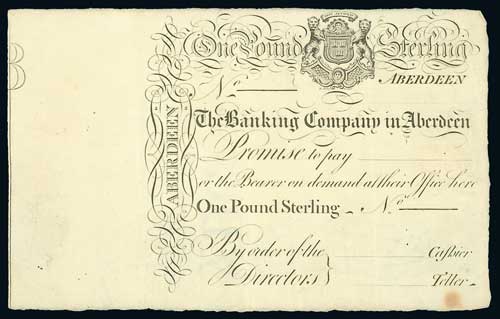 One Pound Sterling
No
ABERDEEN
ABERDEEN
The Banking Company in Aberdeen
Promise to pay
or the Bearer on demand at their Office here
One Pound Sterling - No
By order of the
Directors
Cashier
Teller